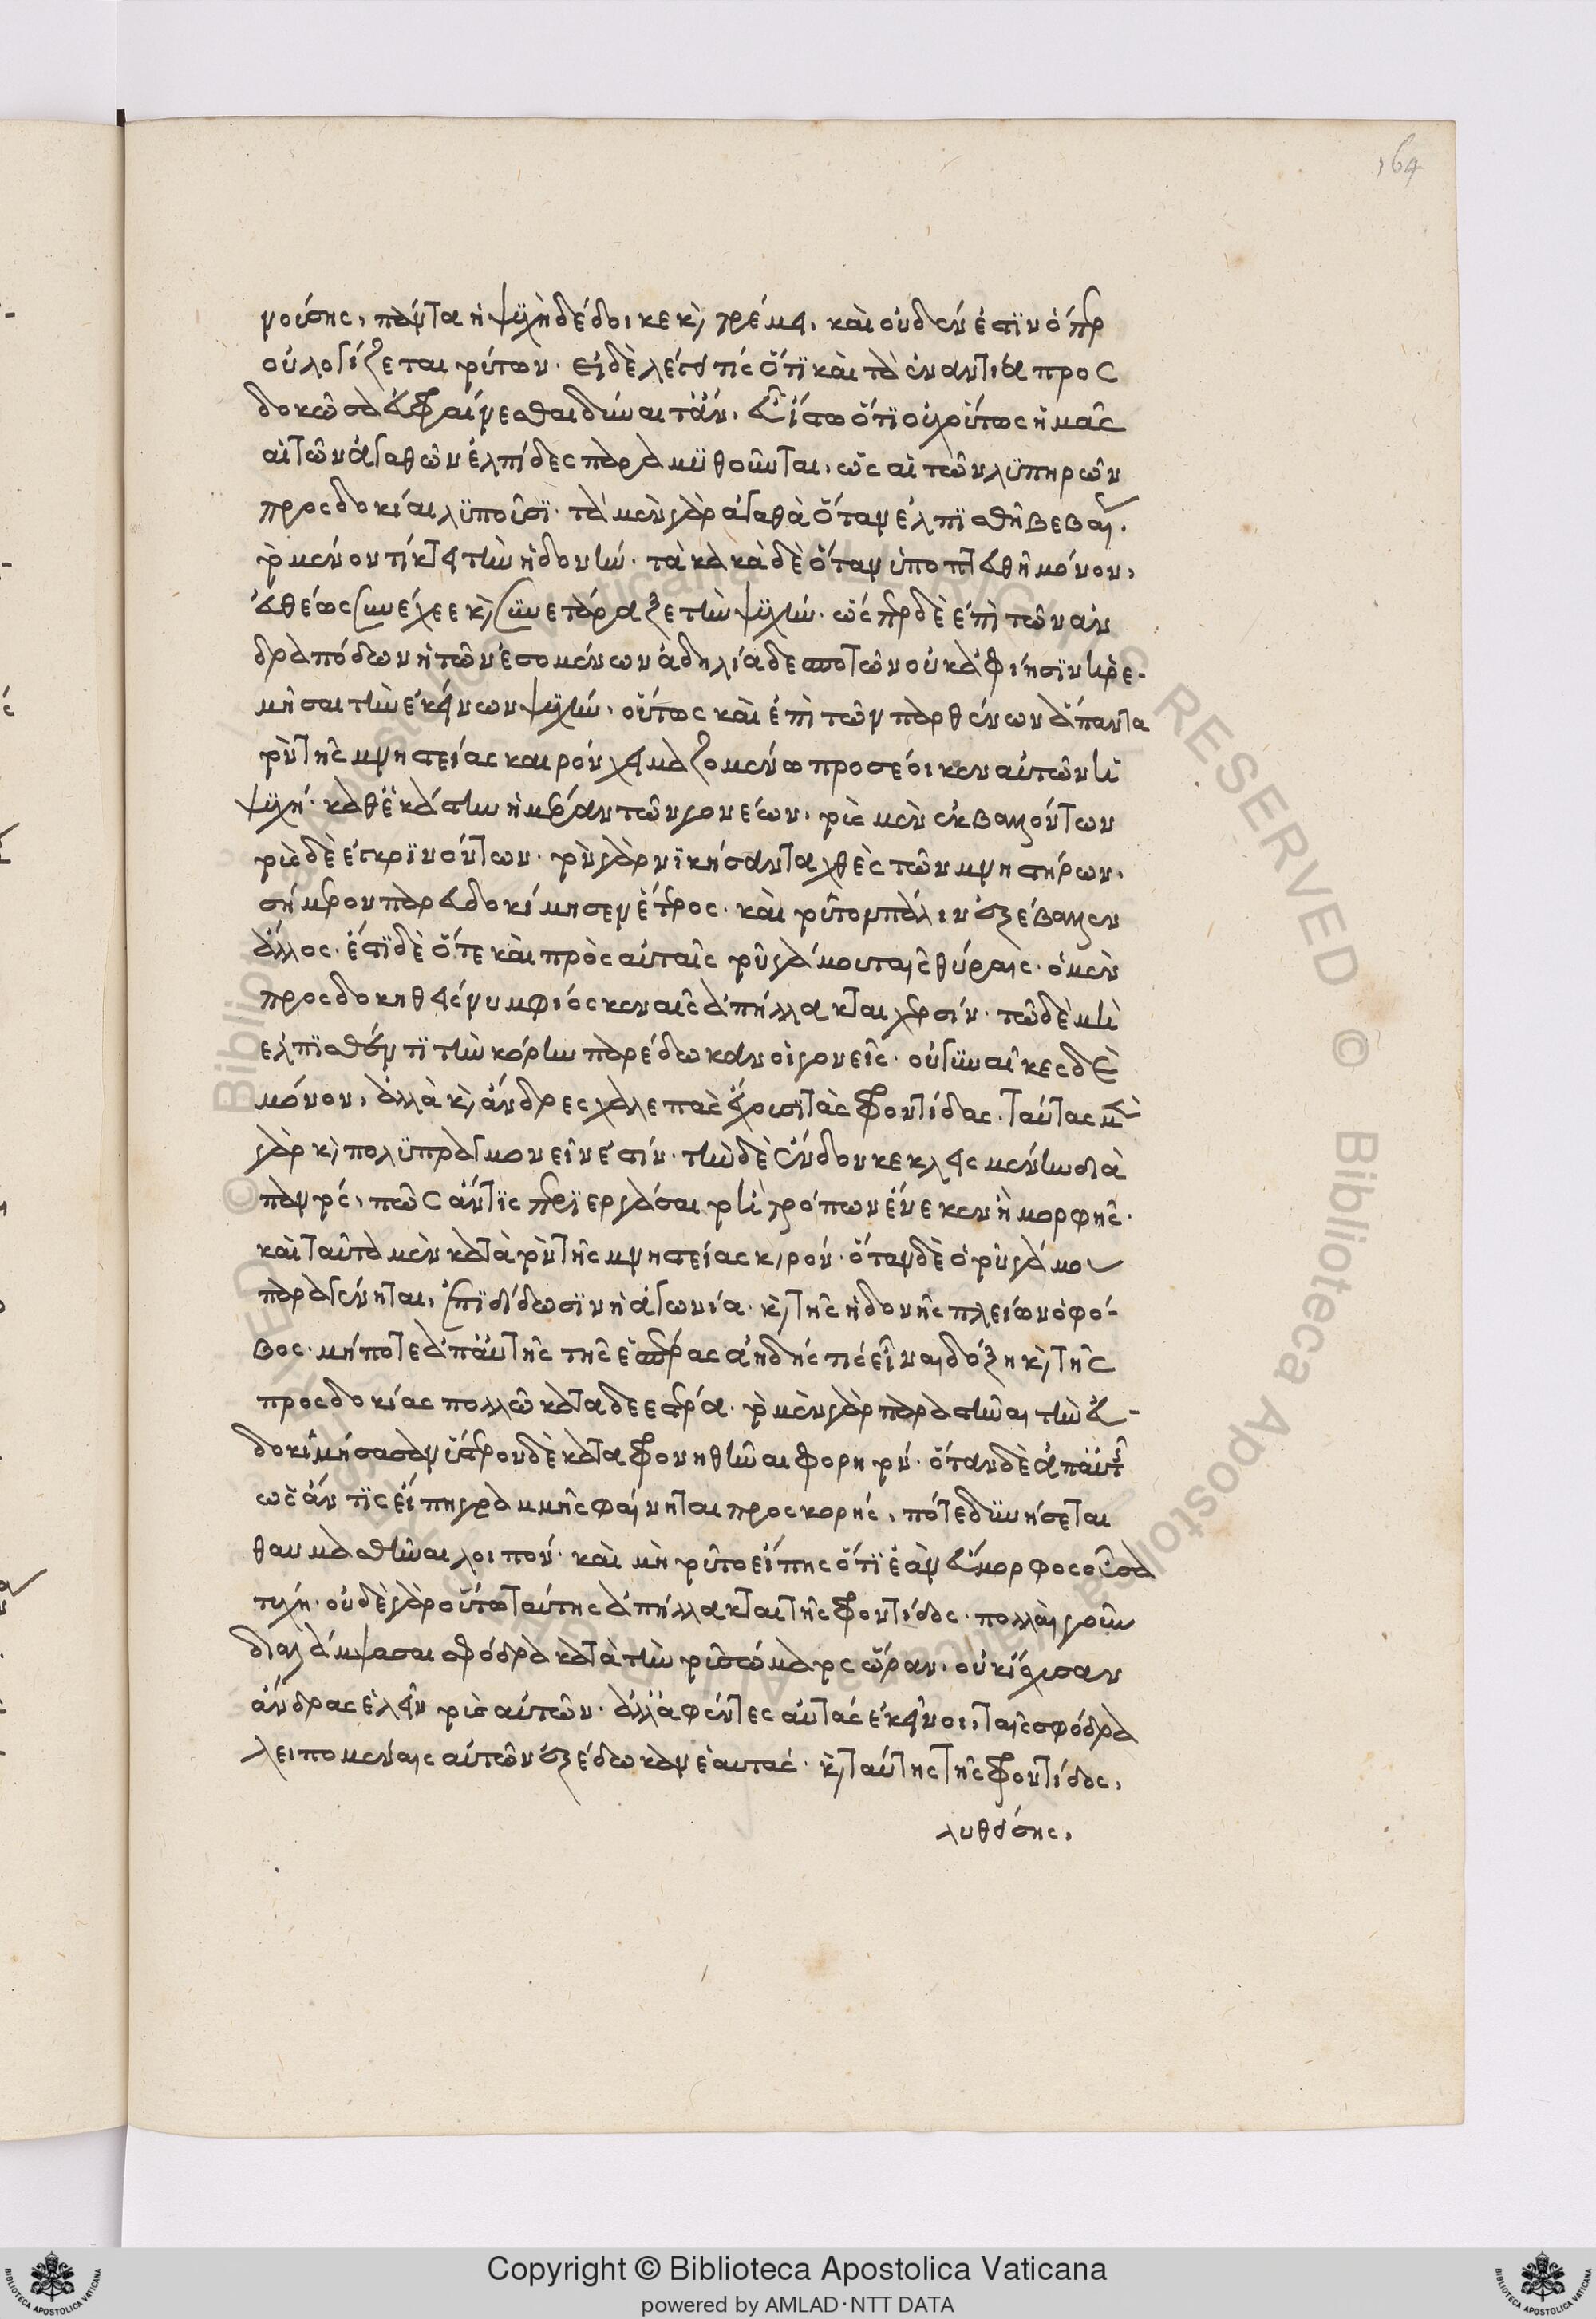 164
νούσης, πάντα ἡ ψυχὴ δέδοικε καὶ τρέμει. καὶ οὐδέν ἐστιν ὅπερ
οὐ λογίζεται τούτων. εἰ δὲ λέγει τίς ὅτι καὶ τὰ ἐναντία προσ
δοκῶσα εὐφραίνεσθαι δύναιτ' ἄν. εὖ ἴστω ὅτι οὐχ οὕτως ἡμᾶς
αἱ τῶν ἀγαθῶν ἐλπίδες παραμυθοῦνται, ὡς αἱ τῶν λυπηρῶν
προσδοκίαι λυποῦσι. τὰ μὲν γὰρ ἀγαθὰ ὅταν ἐλπισθῇ βεβαίως.
τὸ μένον τίκτει τὴν ἡδονήν. τὰ κακὰ δὲ ὅταν ὑποπτευθῇ μόνον,
εὐθέως συνέχεε καὶ συνετάραξε τὴν ψυχήν. ὥσπερ δὲ ἐπὶ τῶν ἀν
δραπόδων ἡ τῶν ἐσομένων ἀδηλία δεσποτῶν οὐκ ἀφίησιν ἠρε-
μῆσαι τὴν ἐκείνων ψυχήν. οὕτως καὶ ἐπὶ τῶν παρθένων ἅπαντα
τὸν τῆς μνηστείας καιρὸν χειμαζομένω προσέοικεν αὐτῶν ἡ
ψυχή. καθ' ἑκάστην ἡμέραν τῶν γονέων, τοὺς μὲν ἐκβαλλόντων
τοὺς δὲ εἰσκρινόντων. τὸν γὰρ νικήσαντα χθὲς τῶν μνηστήρων.
σήμερον παρευδοκίμησεν ἕτερος. καὶ τοῦτον πάλιν ἐξέβαλλεν
ἄλλος. ἔστι δὲ ὅτε καὶ πρὸς αὐταῖς τοῦ γάμου ταῖς θύραις. ὁ μὲν
προσδοκηθεὶς νυμφίος κεναῖς ἀπήλλακται χερσίν. τῶ δὲ μὴ
ἐλπισθέντι τὴν κόρην παρέδωκαν οἱ γονεῖς. οὐ γυναῖκες δὲ
μόνον, ἀλλὰ καὶ ἄνδρες χαλεπὰς ἔχουσι τὰς φροντίδας. ταύτας μὲν
γὰρ καὶ πολυπραγμονεῖν ἔστιν. τὴν δὲ ἔνδον κεκλεισμένην διὰ
παντός, πῶς ἄν τις περιεργάσαιτο ἢ τρόπων ἕνεκεν ἢ μορφῆς.
καὶ ταῦτα μὲν κατὰ τὸν τῆς μνηστείας καιρόν. ὅταν δὲ ὁ τοῦ γάμου
παραγένηται, ἐπιδίδωσιν ἡ ἀγωνία. καὶ τῆς ἡδονῆς πλείων ὁ φό-
βος. μήποτε ἀπ' αὐτῆς τῆς ἑσπέρας ἀηδής τις εἶναι δόξη καὶ τῆς
προσδοκίας πολλῶ καταδεεστέρα. τὸ μὲν γὰρ παρὰ τὴν ἀρχὴν εὐ-
δοκιμήσασαν ὕστερον δὲ καταφρονηθῆναι φορητόν. ὅταν δὲ ἀπ' αὐτῆς
ὡς ἄν τις εἴπη γραμμῆς φαίνηται προσκορής, πότε δυνήσεται
θαυμασθῆναι λοιπόν. καὶ μὴ τοῦτο εἴπης ὅτι ἐὰν εὔμορφος οὖσα
τύχη. οὐδὲ γὰρ οὕτω ταύτης ἀπήλλακται τῆς φροντίδος. πολλαὶ γοῦν
διαλάμψασαι σφόδρα κατὰ τὴν τοῦ σώματος ὥραν, οὐκ ἴσχυσαν
ἄνδρας ἑλεῖν τοὺς αὐτῶν. ἀλλ' ἀφέντες αὐτὰς ἐκεῖνοι, ταῖς σφόδρα
λειπομέναις αὐτῶν ἐξέδωκαν ἑαυτάς. καὶ ταύτης τῆς φροντίδος,
λυθείσης,
Copyright © Biblioteca Apostolica Vaticana
powered by AMLAD·NTT DATA